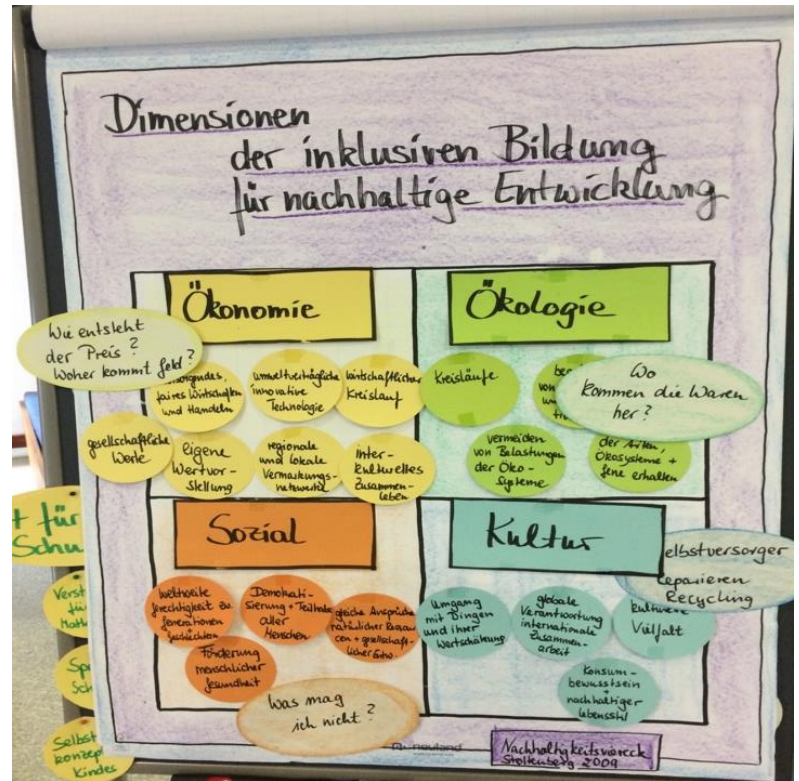 Dimensionen
der inklusiven Bildung
für nachhaltige Entwicklung
Ökonomie
Wie entsteht
der Preis?
Woher kommt Geld?
faires Wirtschaften
und Handeln
umweltverträgliche
innovative
Technologie
wirtschaftlicher
Kreislauf
gesellschaftliche
Werte
eigene
Wertvor-
stellung
regionale
und lokale
Vermarktungs-
netzwerke
Inter-
kulturelles
Zusammen-
leben
Ökologie
Kreisläufe
Wo
kommen die Waren
her?
vermeiden
von Belastungen
der Öko-
Systeme
der Arten,
Ökosysteme +
Gene erhalten
Sozial
weltweite
Gerechtigkeit zw.
Generationen
Geschlechtern
Demokrati-
sierung + Teilhabe
aller
Menschen
gleiche Ansprüche
natürlicher Ressour-
cen + gesellschaft-
licher Entw.
Förderung
menschlicher
Gesundheit
Was mag
ich nicht?
Kultur
elbstversorger
eparieren
Recycling
Umgang
mit Dingen
und ihrer
Wertschätzung
globale
Verantwortung
internationale
Zusammen-
arbeit
Vielfalt
Konsum-
bewusstsein
+
nachhaltiger
Lebensstil
neuland
Nachhaltigkeitsviereck
Stoltenberg 2009
t für
Schu
Verst
für
Math
Sp
Sch
Selbst
konzep
Kindes